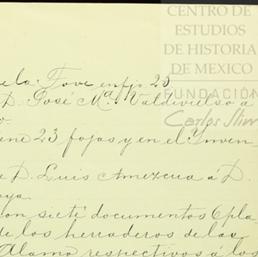 CENTRO DE
ESTUDIOS
DE HISTORIA
DE MEXICO
FUNDACIÓN
Carlos Slim
de la Tove en fjs 23
D. José Ma. Valdivielso a
o.
ene 23 fojas y en el Inven
e D. Luis Amezcua á D.
aya
con siete documentos 6 pla
de los herederos de las
Alamo respectivos á los